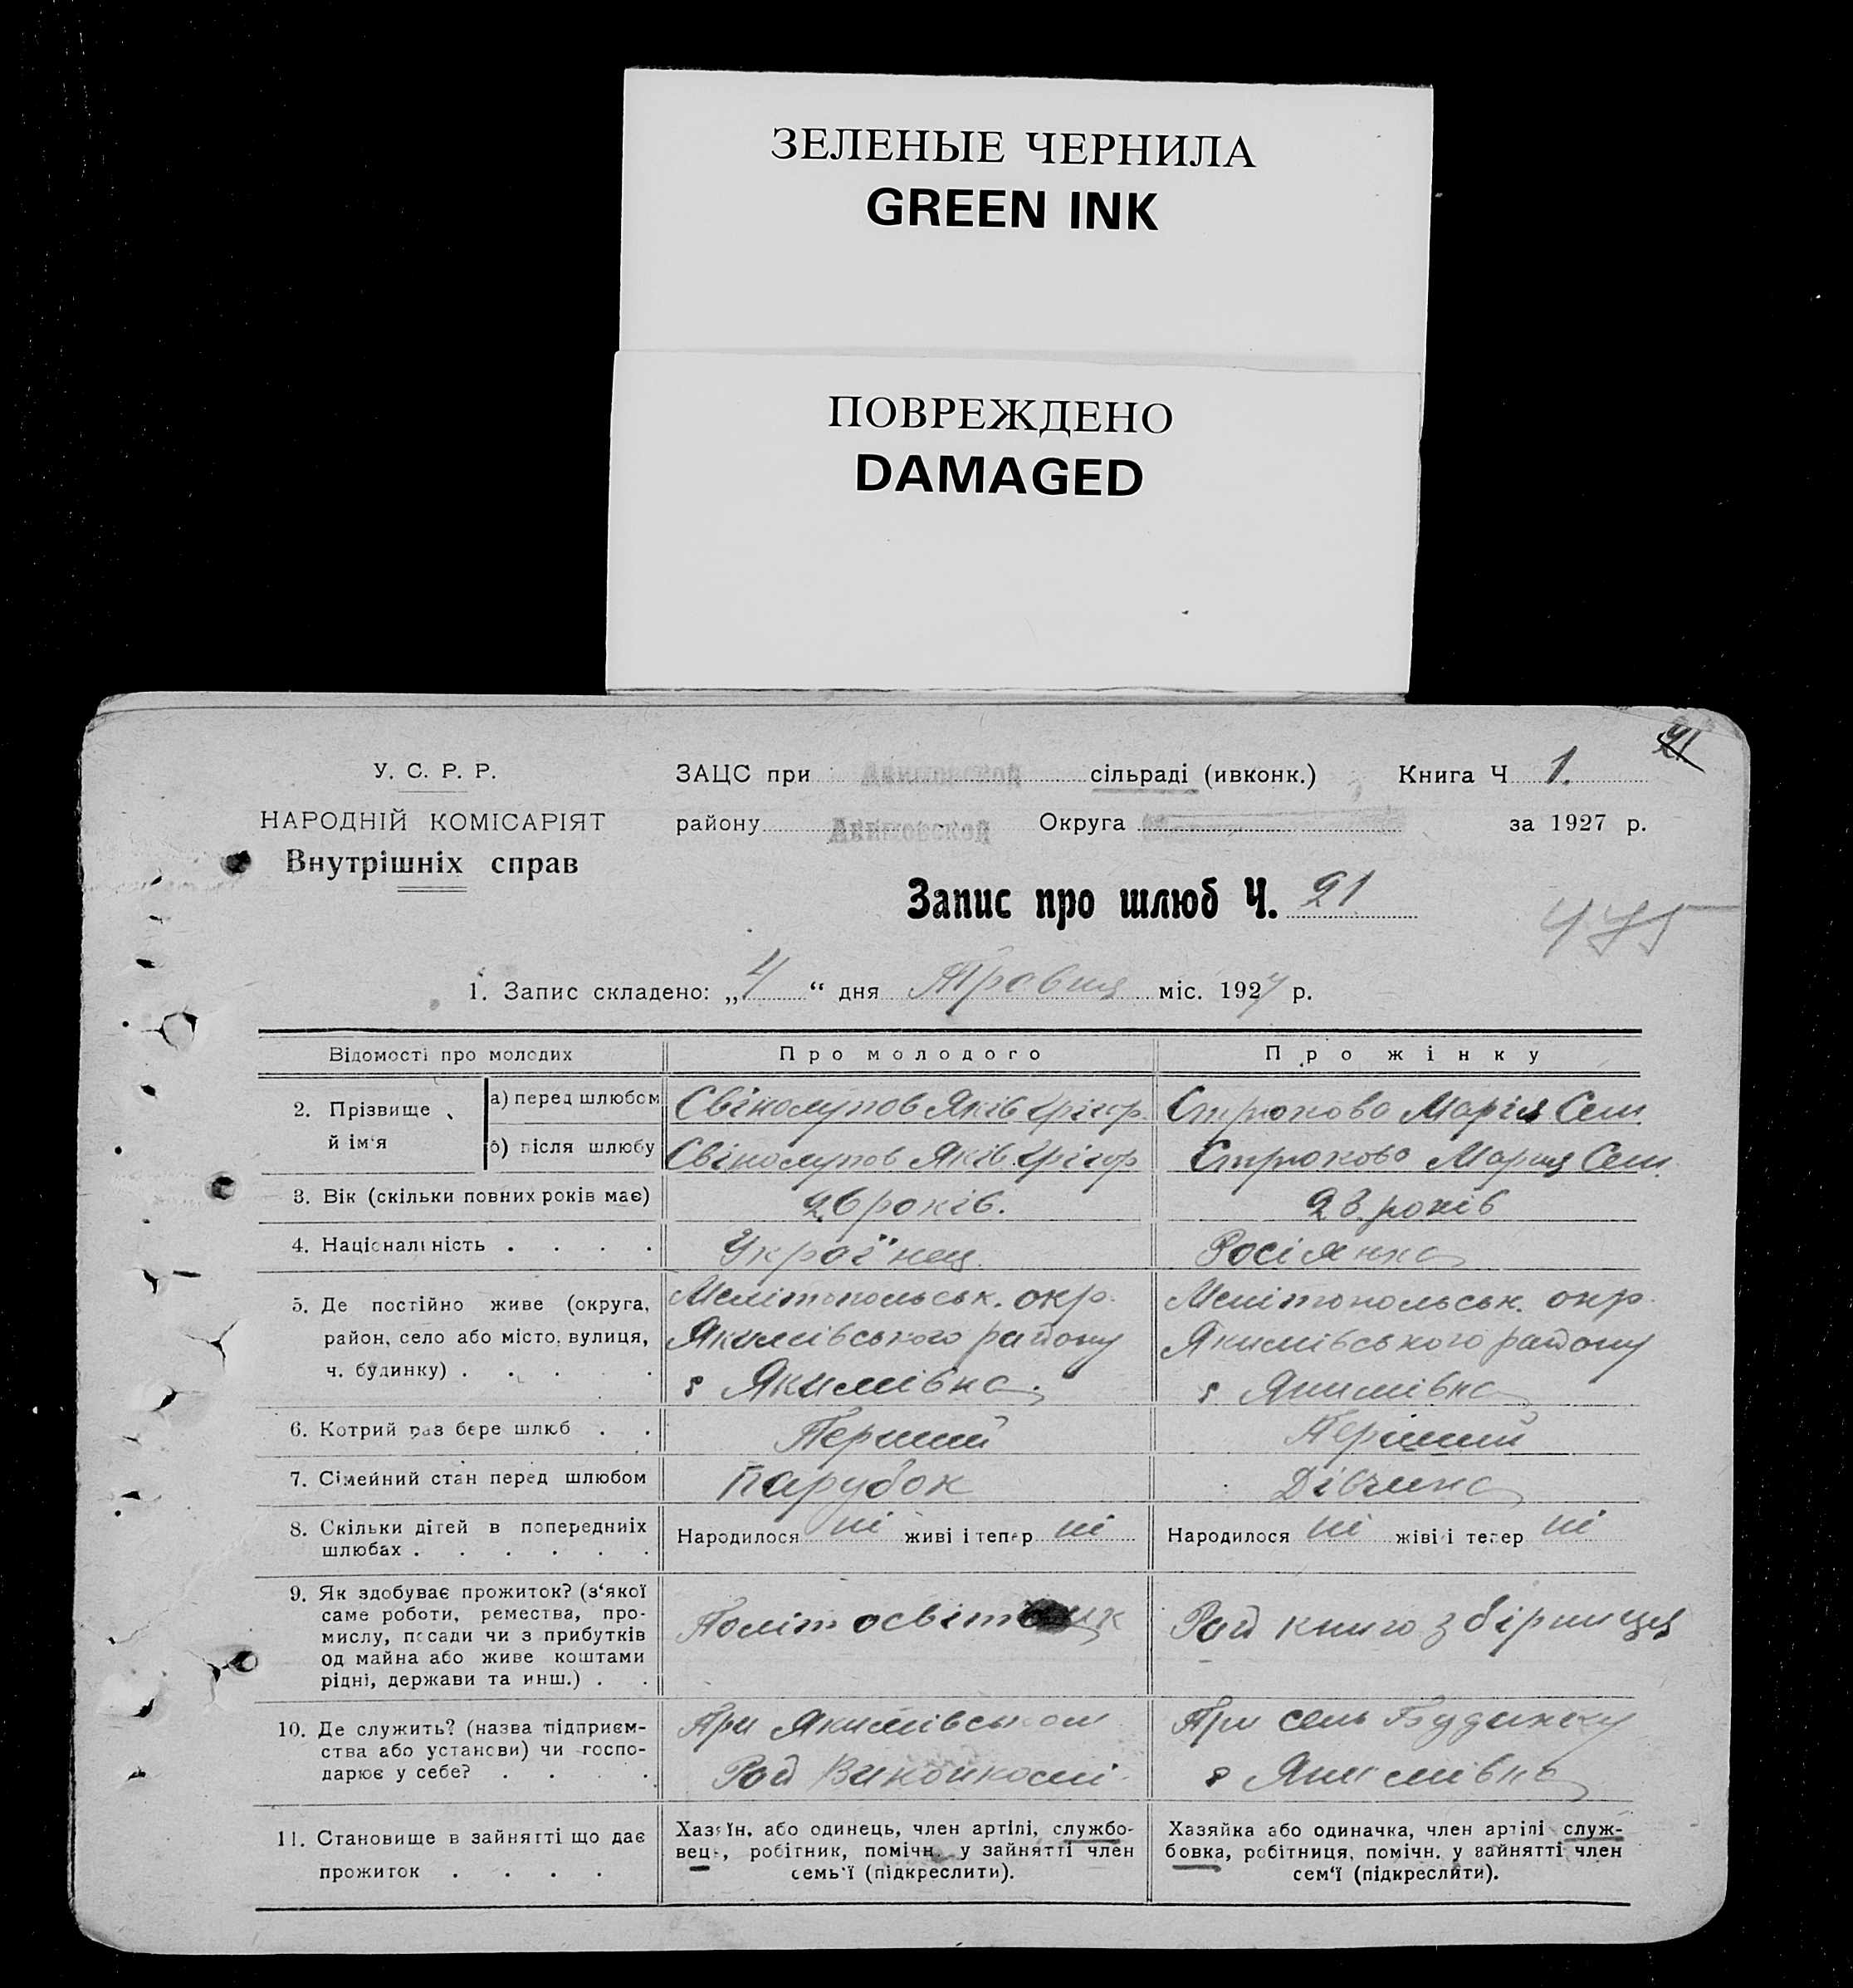 ЗЕЛЕНЫЕ ЧЕРНИЛА
GREEN INK
ПОВРЕЖДЕНО
DAMAGED
91
У. С. Р. Р.
НАРОДНІЙ КОМІСАРІЯТ
Внутрішніх справ
ЗАЦС при Акимовской сільраді (ивконк.) Книга Ч 1.
району Акимовской Округа за 1927 р.
Запис про шлюб Ч. 91
475
1. Запис складено: „4“ дня Травня міс. 1927 р.
Відомості про молодих
Про молодого
Про жінку
2. Прізвище й ім'я
а) перед шлюбом
Свінолупов Яків Грігор.
Стрюкова Марія Сем.
б) після шлюбу
Свінолупов Яків Грігор
Стрюкова Мария Сем.
3. Вік (скільки повних років має)
26 років.
23 років
4. Національність . . . .
Українец
Росіянка
5. Де постійно живе (округа,
район, село або місто, вулиця,
ч. будинку) . . . . .
Мелітопольськ. окр.
Якимівського району
с Якимівка.
Мелітопольськ. окр.
Якимівського району
с Якимівка
6. Котрий раз бере шлюб . .
Перший
Перший
7. Сімейний стан перед шлюбом
Парубок
Дівчина
8. Скільки дітей в попередниіх
шлюбах . . . . . .
Народилося ні живі і тепер ні
Народилося ні живі і тепер ні
9. Як здобуває прожиток? (з'якої
саме роботи, ремества, про-
мислу, посади чи з прибутків
од майна або живе коштами
рідні, держави та инш.) . .
Політосвітник
Рай книго збірниця
10. Де служить? (назва підприєм-
ства або установи) чи госпо-
дарює у себе? . . . .
При Якимівськом
Рай Виконкомі
При сель Будинку
с Якимівка
11. Становище в зайнятті що дає
прожиток . . . .
Хазяїн, або одинець, член артілі, службо-
вець, робітник, помічн. у зайнятті член
семь'ї (підкреслити).
Хазяйка або одиначка, член артілі служ-
бовка, робітниця, помічн. у зайнятті член
сем'ї (підкреслити).